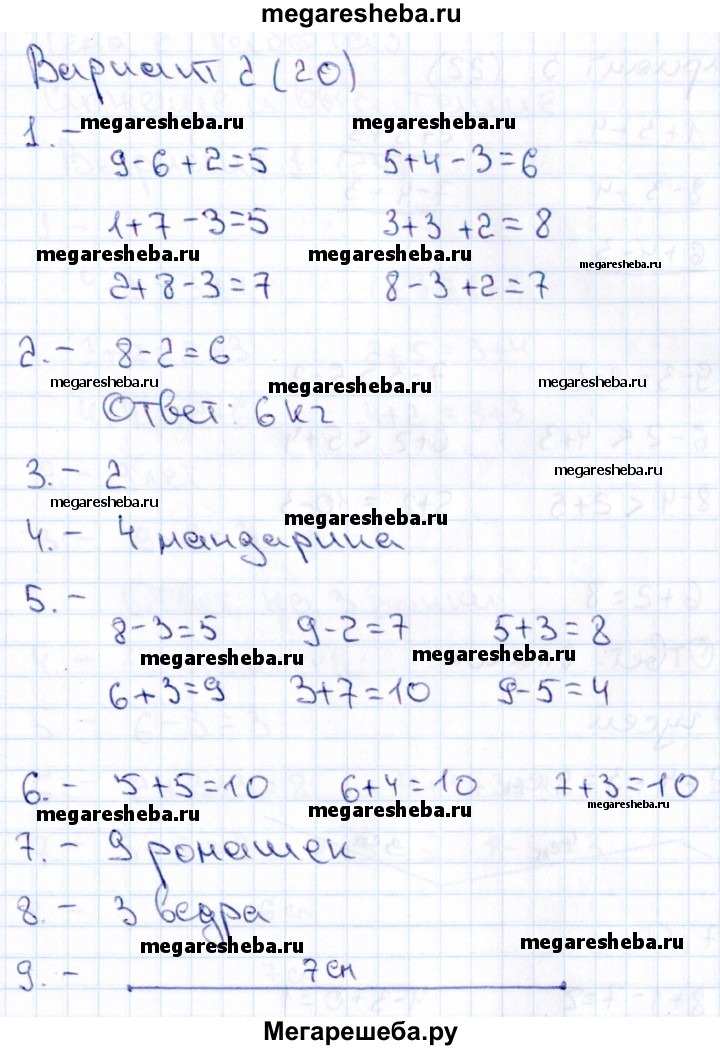 megaresheba.ru
Вариант 2 (20)
1. -
megaresheba.ru megaresheba.ru
9-6+2=5 5+4-3=6
1+7-3=5 3+3+2=8
megaresheba.ru megaresheba.ru megaresheba.ru
2+8-3=7 8-3+2=7
2. - 8-2=6
megaresheba.ru megaresheba.ru megaresheba.ru
Ответ: 6 кг
3. - 2
megaresheba.ru megaresheba.ru megaresheba.ru
4. - 4 мандарина
5. -
8-3=5 9-2=7 5+3=8
megaresheba.ru megaresheba.ru
6+3=9 3+7=10 9-5=4
6. - 5+5=10 6+4=10 7+3=10
megaresheba.ru megaresheba.ru megaresheba.ru
7. - 9 ромашек
8. - 3 ведра
megaresheba.ru megaresheba.ru
9. - 7 см
Мегарешеба.ру